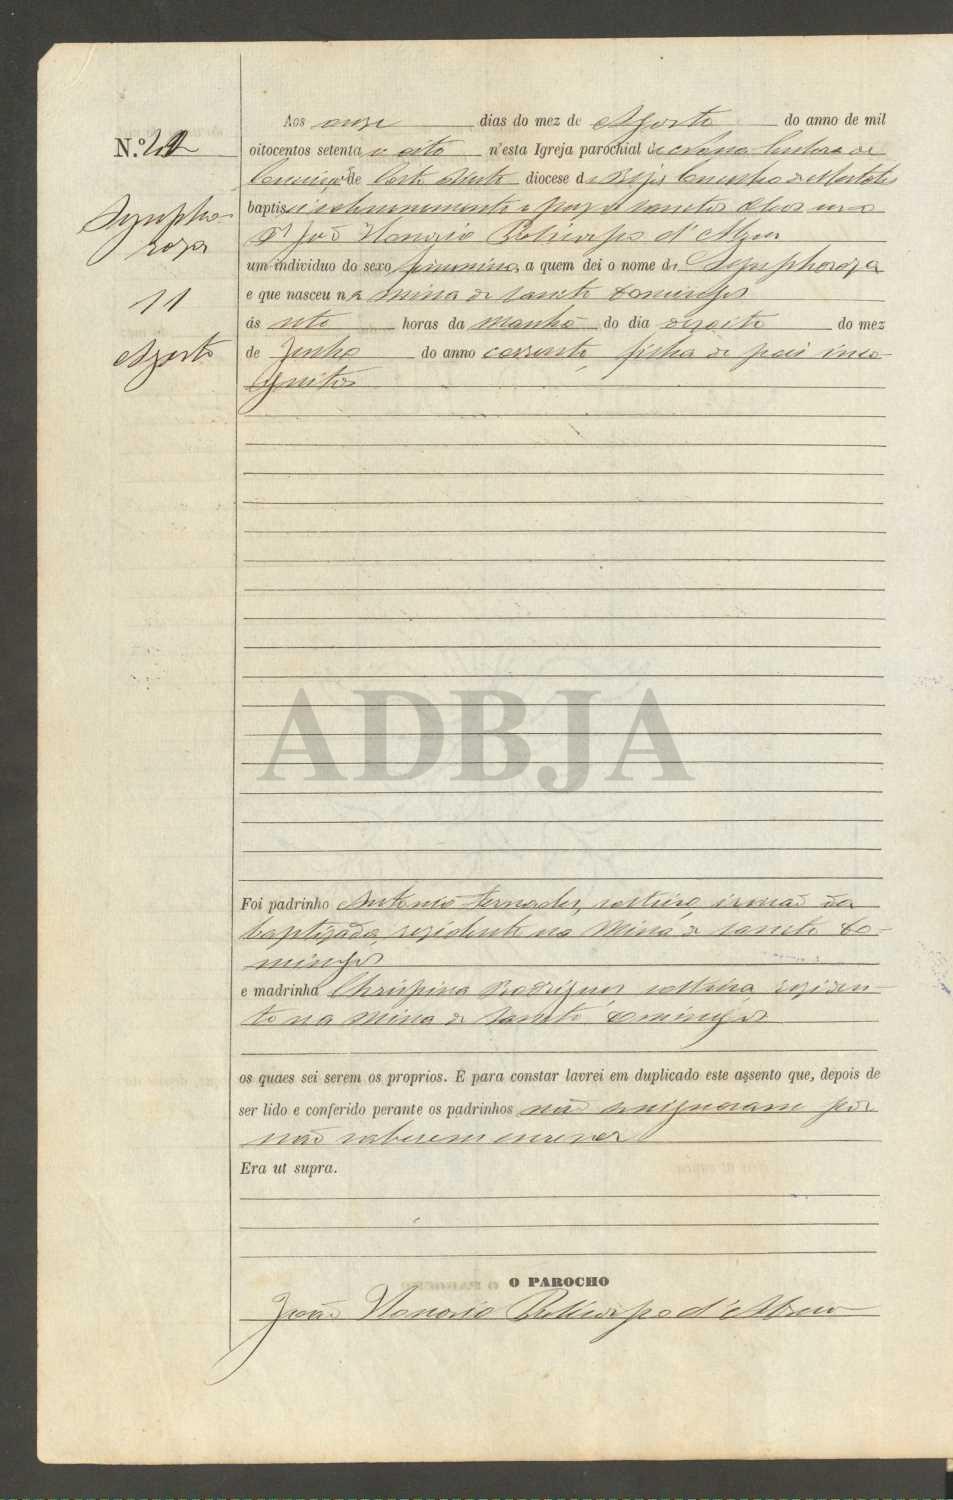 Aos onze dias do mez de Agosto do anno de mil
N.º
oitocentos setenta e oito n'esta Igreja parochial de Senhora da
Conceição de Corte do Pinto diocese de Beja Concelho de Mertola
Sympho-
roza
baptisei solemnemente e puz os sanctos oleos
João Honorio Policarpo d'Abreu
um individuo do sexo feminino a quem dei o nome de Symphoroza
11
e que nasceu na Mina de Sancto Domingos
ás oito horas da manhã do dia dezoito do mez
Agosto
de Junho do anno corrente, filha de pais inco-
gnitos
ADBJA
Foi padrinho Antonio Fernandes, solteiro, irmão da
baptizada, rezidente na Mina de Sancto Do-
mingos
e madrinha Chrispina Rodrigues solteira reziden-
te na Mina de Sancto Domingos
os quaes sei serem os proprios. E para constar lavrei em duplicado este assento que, depois de
ser lido e conferido perante os padrinhos não assignaram por
não saberem escrever
Era ut supra.
O PAROCHO
João Honorio Policarpo d'Abreu